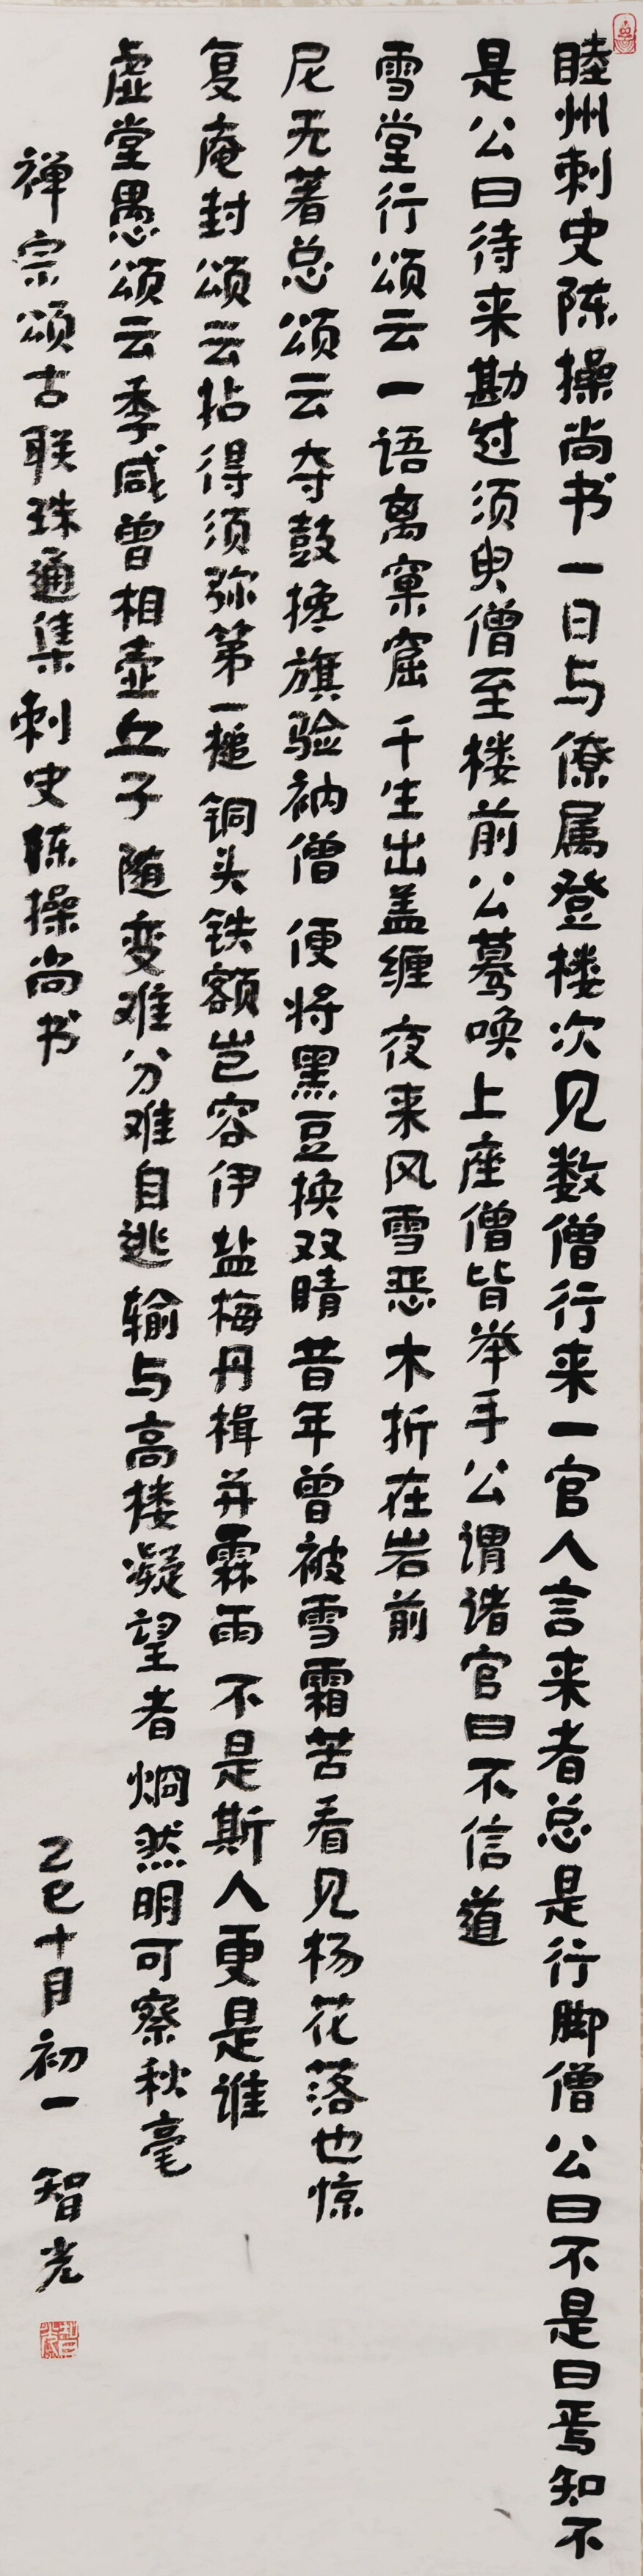 睦州刺史陈操尚书一日与僚属登楼次见数僧行来一官人言来者总是行脚僧公曰不是曰焉知不
是公曰待来勘过须臾僧至楼前公蓦唤上座僧皆举手公谓诸官曰不信道
雪堂行颂云一语离窠窟千生出盖缠夜来风雪恶木折在岩前
尼无著总颂云夺鼓搀旗验衲僧便将黑豆换双睛昔年曾被雪霜苦看见杨花落也惊
复庵封颂云拈得须弥第一槌铜头铁额岂容伊盐梅丹楫并霖雨不是斯人更是谁
虚堂愚颂云季咸曾相壶丘子随变难分难自逃输与高楼凝望者炯然明可察秋毫
禅宗颂古联珠通集刺史陈操尚书
乙巳十月初一 智光